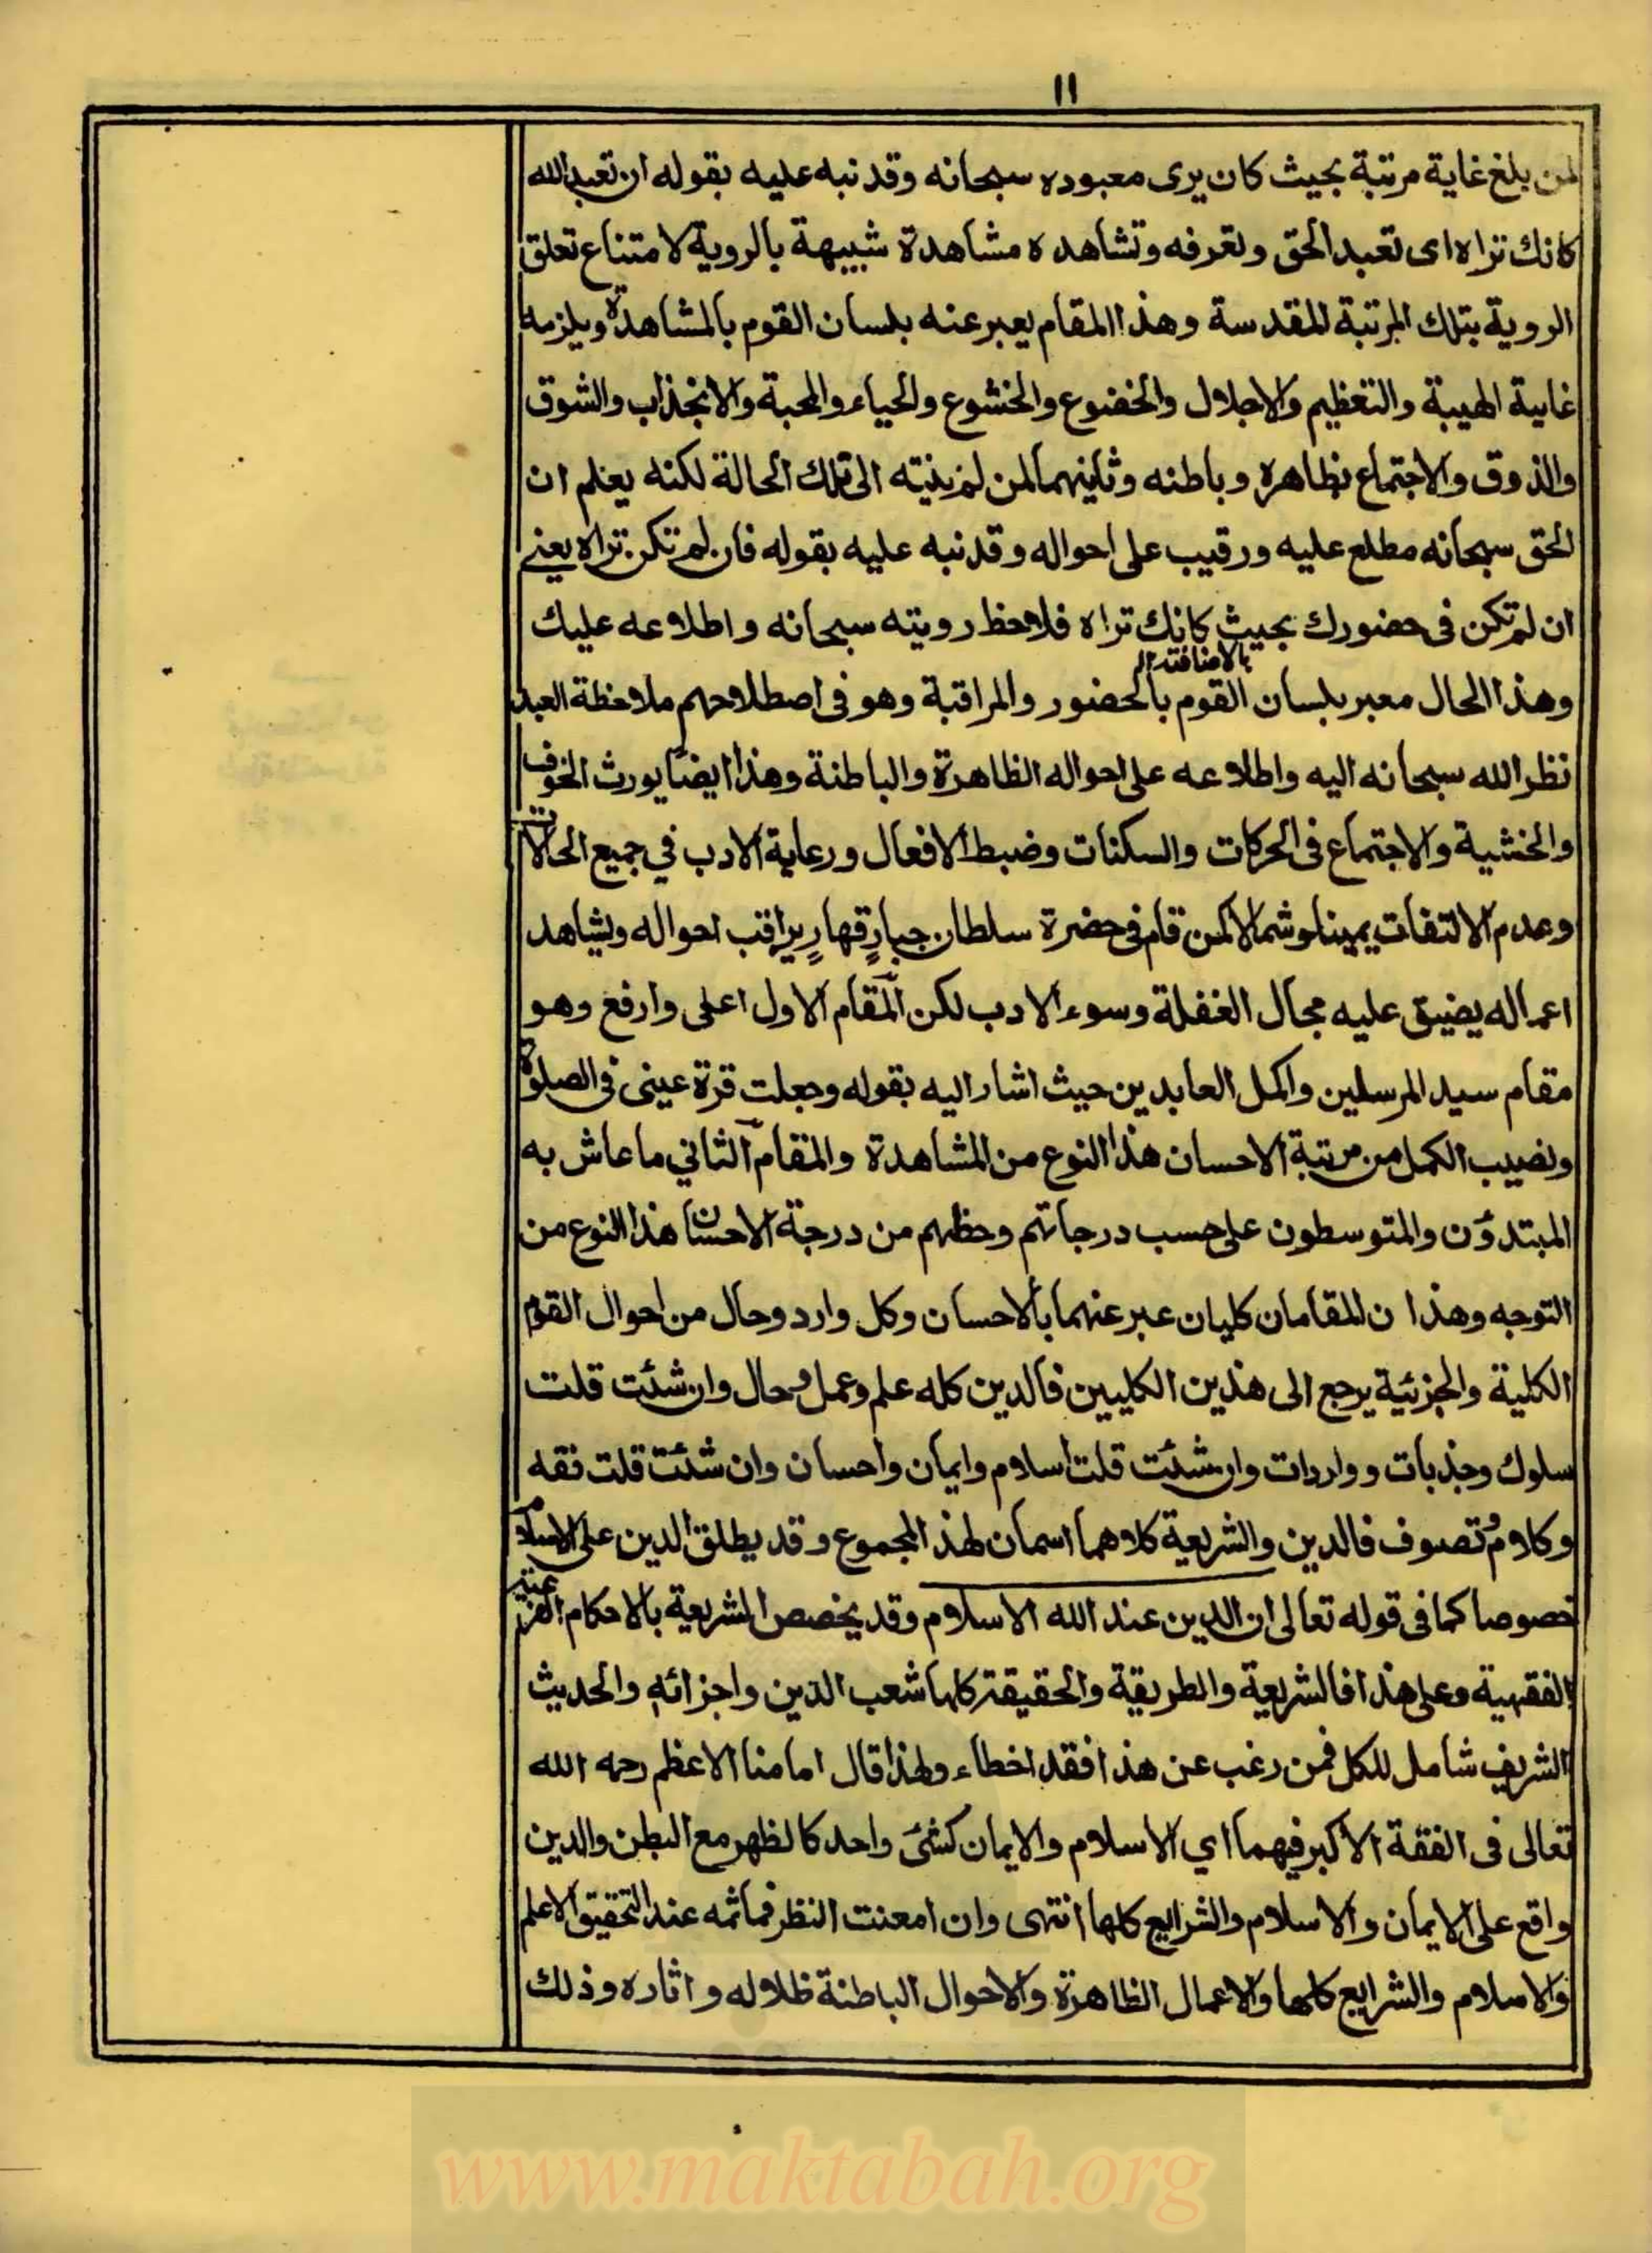 ١١
لمن بلغ غاية مرتبة بحيث كان يرى معبوده سبحانه وقد نبه عليه بقوله ان تعبد الله
كانك تراه اى تعبد الحق وتعرفه وتشاهده مشاهدة شبيهة بالروية لامتناع تعلق
الروية بتلك المرتبة المقدسة وهذا المقام يعبر عنه بلسان القوم بالمشاهدة ويلزمه
غاية الهيبة والتعظيم والاجلال والخضوع والخشوع والحياء والمحبة والانجذاب والشوق
والذوق والاجتماع بظاهره وباطنه وثانيهما لمن لم ينته الى تلك الحالة لكنه يعلم ان
الحق سبحانه مطلع عليه ورقيب على احواله وقد نبه عليه بقوله فان لم تكن تراه يعنے
ان لم تكن فى حضورك بحيث كانك تراه فلاحظ رويته سبحانه واطلاعه عليك
بالاضافة ال
وهذا الحال معبر بلسان القوم بالحضور والمراقبة وهو فى اصطلاحهم ملاحظة العبد
نظر الله سبحانه اليه واطلاعه على احواله الظاهرة والباطنة وهذا ايضا يورث الخوف
والخشية والاجتماع فى الحركات والسكنات وضبط الافعال ورعاية الادب في جميع الحالات
وعدم الالتفات يمينا وشمالا كمن قام فى حضرة سلطان جبارٍ قهارٍ يراقب احواله ويشاهد
اعماله يضيق عليه مجال الغفلة وسوء الادب لكن المقام الاول اعلى وارفع وهو
مقام سيد المرسلين واكمل العابدين حيث اشار اليه بقوله وجعلت قرة عينى فى الصلوة
ونصيب الكمل من مرتبة الاحسان هذا النوع من المشاهدة والمقام الثاني ما عاش به
المبتدؤن والمتوسطون على حسب درجاتهم وحظهم من درجة الاحسان هذا النوع من
التوجه وهذا ن المقامان كليان عبر عنهما بالاحسان وكل وارد وحال من احوال القوم
الكلية والجزئية يرجع الى هذين الكليين فالدين كله علم وعمل وحال وان شئت قلت
سلوك وجذبات و واردات وان شئت قلت اسلام وايمان واحسان وان شئت قلت فقه
وكلام وتصوف فالدين والشريعة كلاهما اسمان لهذا المجموع وقد يطلق الدين على الاسلام
خصوصا كما فى قوله تعالى ان الدين عند الله الاسلام وقد يخصص الشريعة بالاحكام الفرعية
الفقهية وعلى هذا فالشريعة والطريقة والحقيقة كلها شعب الدين واجزائه والحديث
الشريف شامل للكل فمن رغب عن هذا فقد اخطاء ولهذا قال امامنا الاعظم رحمه الله
تعالى فى الفقة الاكبر فيهما اي الاسلام والايمان كشئ واحد كالظهر مع البطن والدين
واقع على الايمان والاسلام والشرايع كلها انتهى وان امعنت النظر فما ثمه عند التحقيق الا علم
والاسلام والشرايع كلها والاعمال الظاهرة والاحوال الباطنة ظلاله و اثاره وذلك
www.maktabah.org